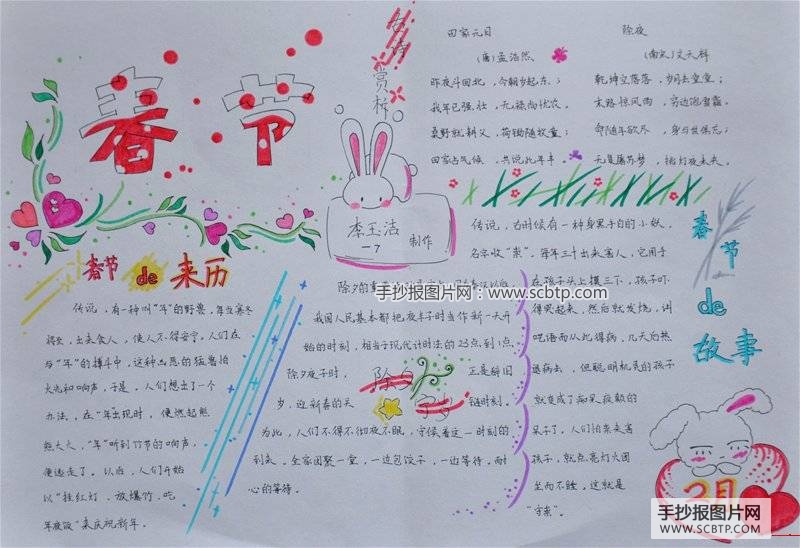 春节
古诗
赏析
田家元日
(唐)孟浩然
昨夜斗回北，今朝岁起东；
我年已强壮，无禄尚忧农。
桑野就耕父，荷锄随牧童；
田家占气候，共说此年丰。
除夜
(南宋)文天祥
乾坤空落落，岁月去堂堂；
末路惊风雨，穷边饱雪霜。
命随年欲尽，身与世俱忘；
无复屠苏梦，挑灯夜未央。
李玉洁
一7
制作
春节de来历
传说，有一种叫“年”的野兽，每当寒冬
将至，出来食人，使人不得安宁。人们在
与“年”的搏斗中，这种凶恶的猛兽怕
火光和响声，于是，人们想出了一个
办法，在“年”出现时，便燃起熊
熊大火，“年”听到竹节的响声，
便逃走了。以后，人们开始
以“挂红灯、放爆竹、吃
年夜饭”来庆祝新年。
除夕守岁
除夕的
我国人民基本都把夜半子时当作新一天开
始的时刻，相当于现代计时法的23点到1点
除夕夜子时，正是辞旧
岁，迎新春的关键时刻，
为此，人们不得不彻夜不眠，守候着这一时刻的
到来，全家团聚一堂，一边包饺子，一边等待，耐
心的等待。
春节de故事
传说，古时候有一种身黑手白的小妖，
名字叫“祟”。每年三十出来害人，它用手
在孩子头上摸三下，孩子吓
得哭起来，然后就发烧，讲
呓语而从此得病，几天后热
退病去，但聪明机灵的孩子
就变成了痴呆疯癫的
呆子了，人们怕祟来害
孩子，就点亮灯火团
坐而不睡，这就是
“守祟”。
2月
手抄报图片网：www.scbtp.com
手抄报图片网
WWW.SCBTP.COM